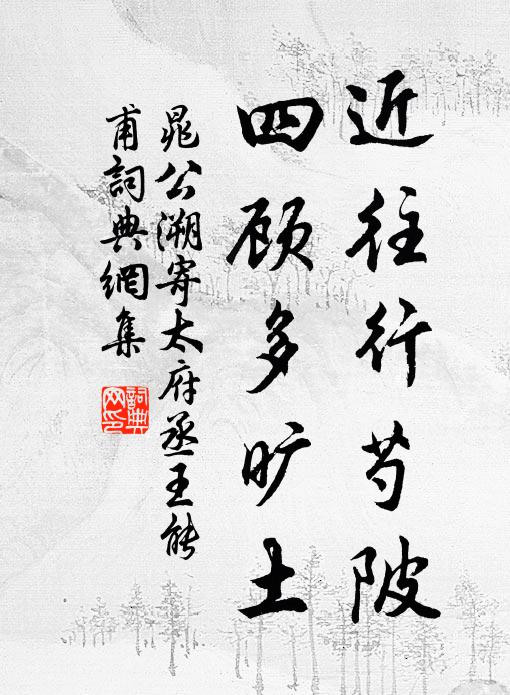 近往行芍陂
四顾多旷土
晁公溯寄太府丞王能
甫詞典網集
詞典
网印